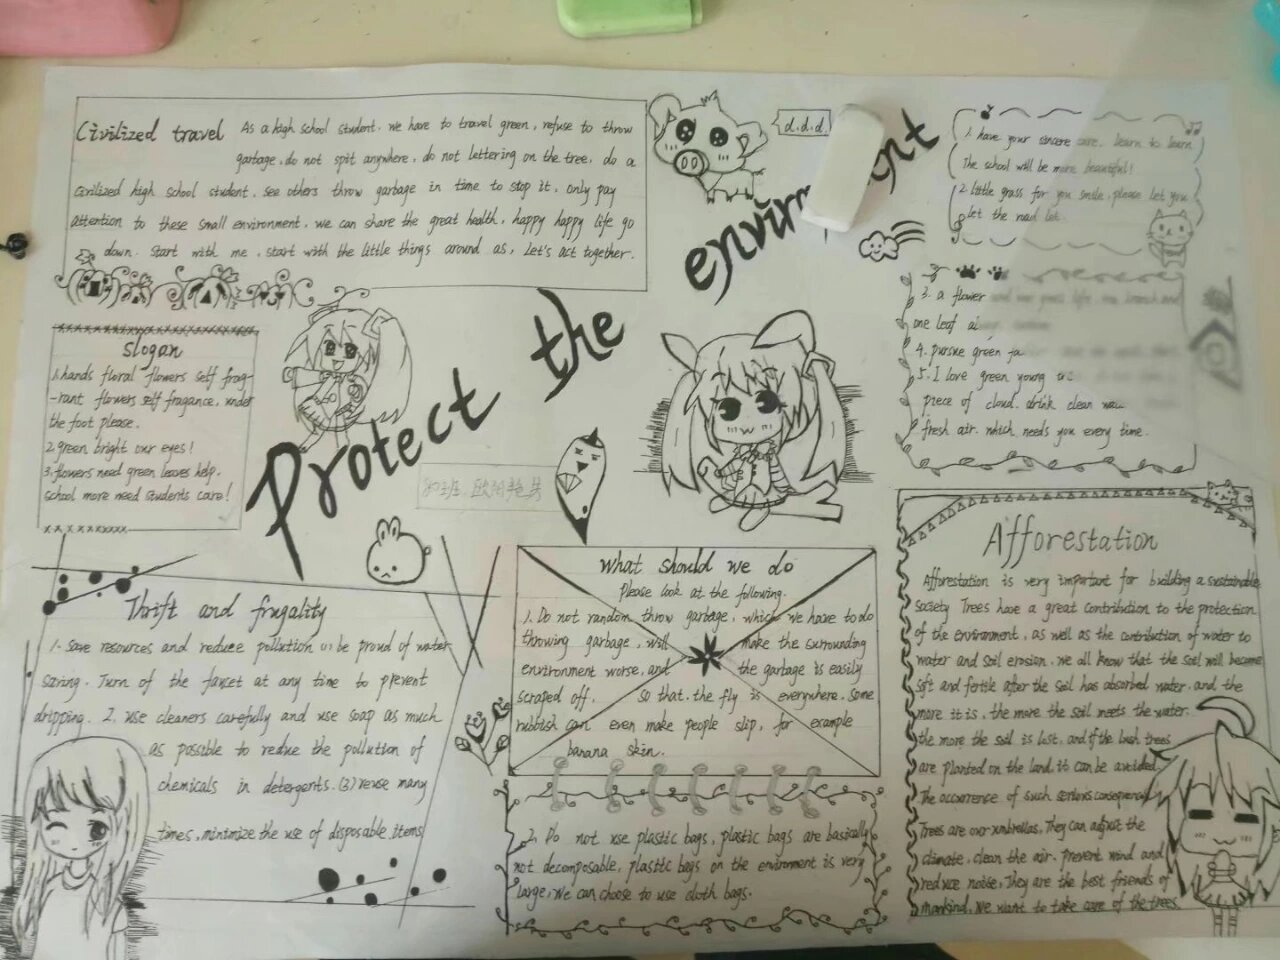 Civilized travel As a high school student, we have to travel green, refuse to throw
garbage, do not spit anywhere, do not lettering on the tree, do a
civilized high school student, see others throw garbage in time to stop it, only pay
attention to these small environment, we can share the great health, happy happy life go
down. Start with me, start with the little things around as, Let's act together.
d.d.d
Protect the
slogan
1. hands floral flowers self frag-
-rant flowers self fragance, under
the foot please.
2. green bright our eyes!
3. flowers need green leaves help.
school more need students care!
1. have your sincere care. learn to learn
The school will be more beautiful!
2. little grass for you smile, please let you
let the road let.
3. a flower
one leaf
4. pursue green
5. I love green young
piece of cloud. drink clean
fresh air. which needs you every time.
Thrift and frugality
1. Save resources and reduce pollution be proud of water
saving. Turn of the faucet at any time to prevent
dripping. 2. use cleaners carefully and use soap as much
as possible to reduce the pollution of
chemicals in detergents. (3) reuse many
times, minimize the use of disposable items
What should we do
Please look at the following.
1. Do not random throw garbage, which we have to do
throwing garbage, will make the surrounding
environment worse, and the garbage is easily
scraped off. so that. the fly is everywhere. Some
rubbish can even make people slip, for example
banana skin.
2. Do not use plastic bags, plastic bags are basically
not decomposable, plastic bags on the enviroment is very
large, we can choose to use cloth bags.
Afforestation
Afforestation is very important for building a sustainable
society Trees have a great contribution to the protection
of the environment, as well as the contribution of water to
water and soil erosion. we all know that the soil will become
soft and fertile after the soil has absorbed water. and the
more it is, the more the soil meets the water.
the more the soil is lost, and if the lush trees
are planted on the land, it can be avoided
The occurrence of such serious
Trees are our umbrellas, They can adjust the
climate, clean the air. prevent wind and
reduce noise, They are the best friends of
mankind. We want to take care of the trees